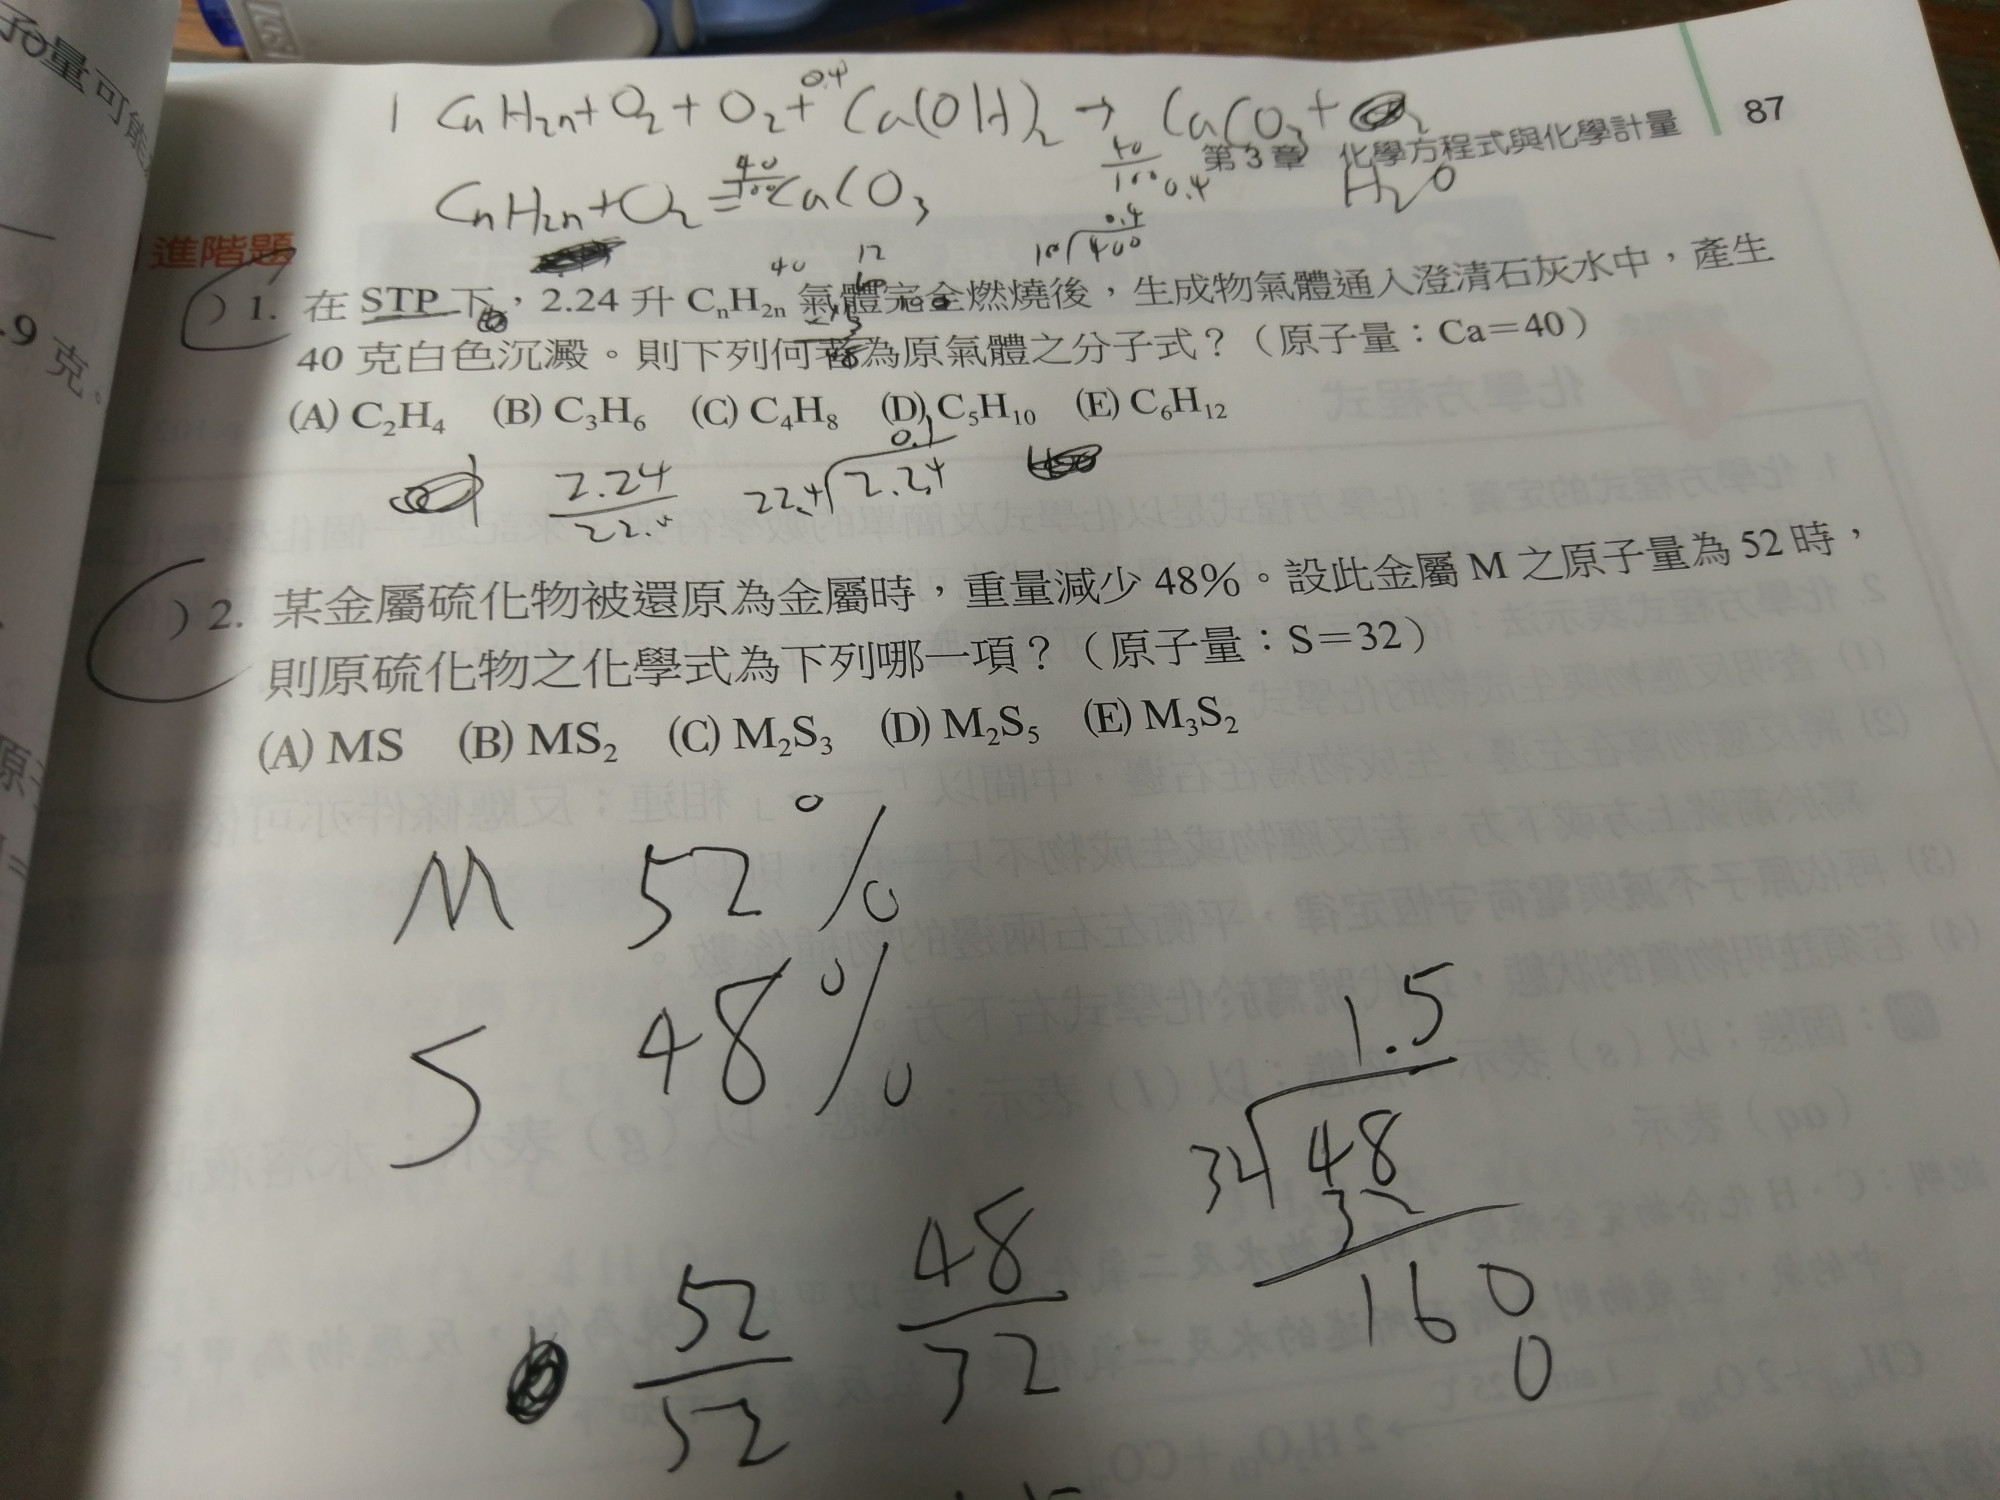 子量可能
1 CnH2n+O2+O2+0.4Ca(OH)2→CaCO3+
87
第3章 化學方程式與化學計量
CnH2n+O2=40/100CaCO3
40/100 0.4
H2O
進階題
0.4
100)400
40 12
)1. 在 STP 下,2.24 升 CnH2n 氣體完全燃燒後,生成物氣體通入澄清石灰水中,產生
.9 克。
40 克白色沉澱。則下列何者為原氣體之分子式?(原子量:Ca=40)
(A) C2H4 (B) C3H6 (C) C4H8 (D) C5H10 (E) C6H12
0.1
2.24 22.4)2.24
22.4
)2. 某金屬硫化物被還原為金屬時,重量減少 48%。設此金屬 M 之原子量為 52 時,
則原硫化物之化學式為下列哪一項?(原子量:S=32)
(A) MS (B) MS2 (C) M2S3 (D) M2S5 (E) M3S2
M 52%
S 48%
1.5
32)48
32
160
0
52/52 48/32